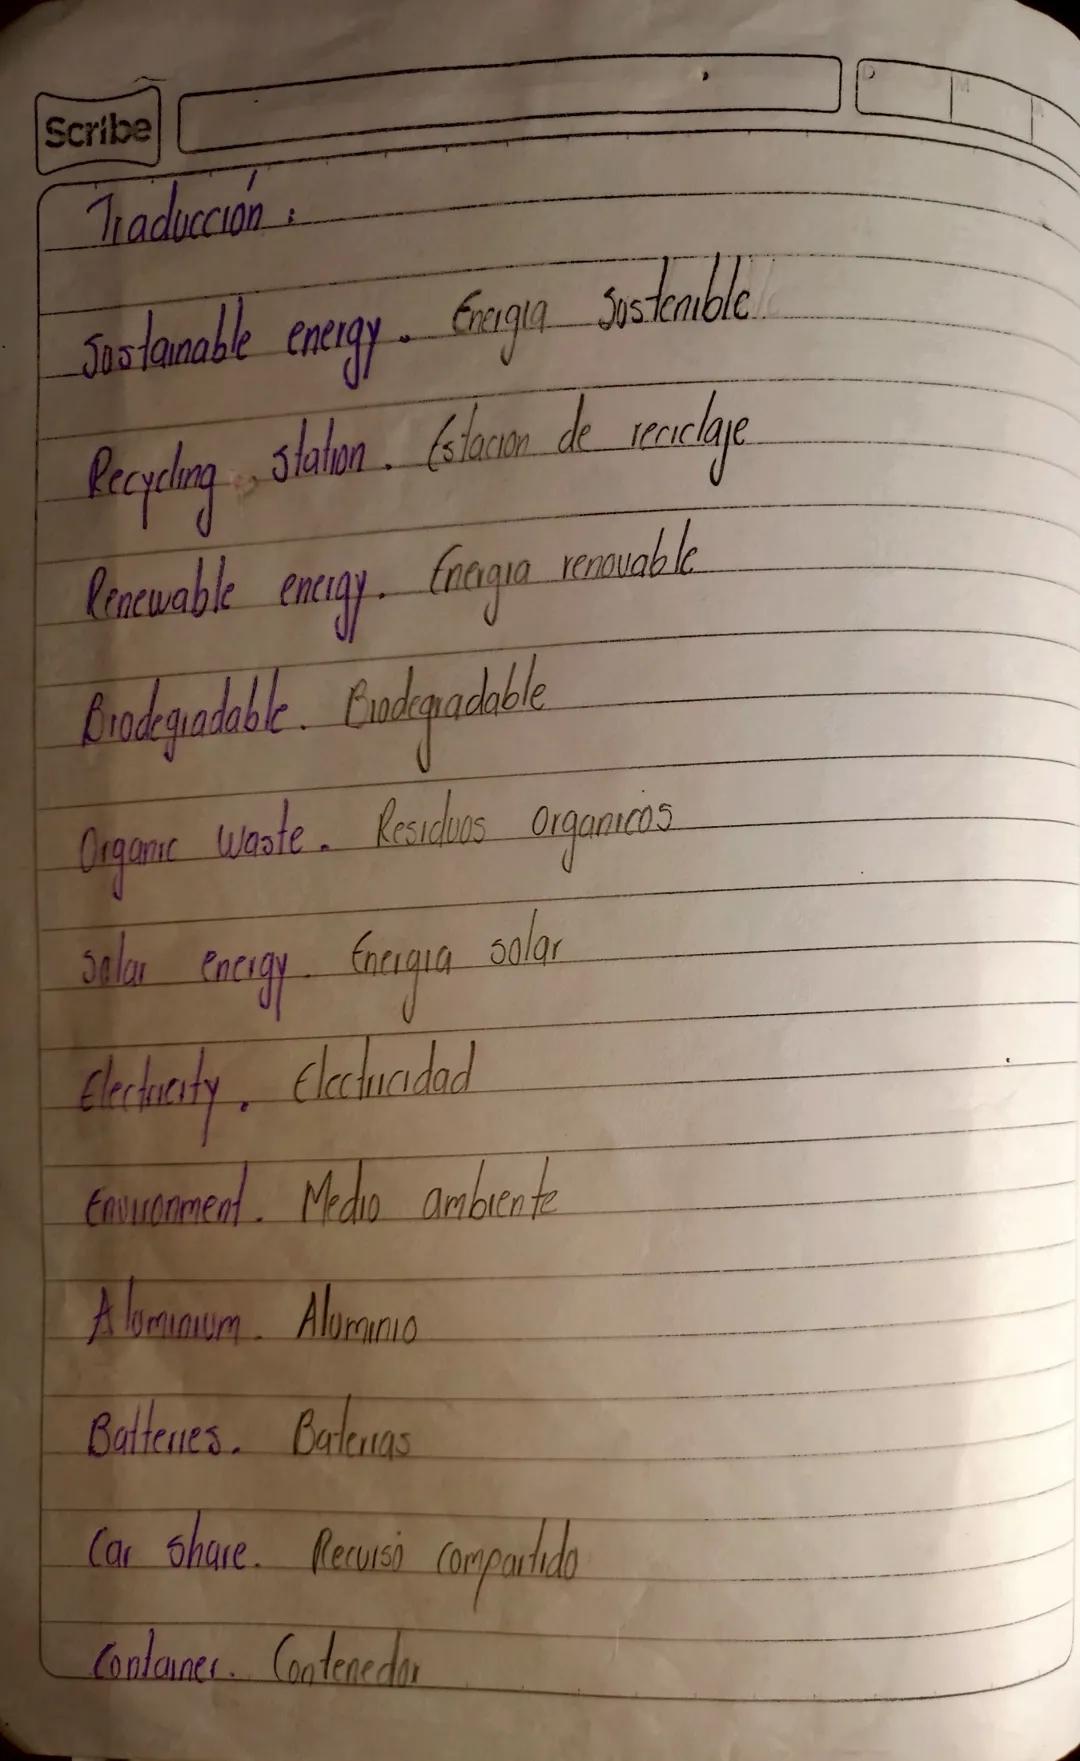 Scribe
D M A
Traducción:
Sustainable energy. Energia Sostenible
Recycling station. Estacion de reciclaje
Renewable energy. Energia renovable
Biodegradable. Biodegradable
Organic Waste. Residuos Organicos
Solar energy. Energia solar
Electricity. Electricidad
Environment. Medio ambiente
Aluminium. Aluminio
Batteries. Baterias
Car share. Recurso compartido
Container. Contenedor